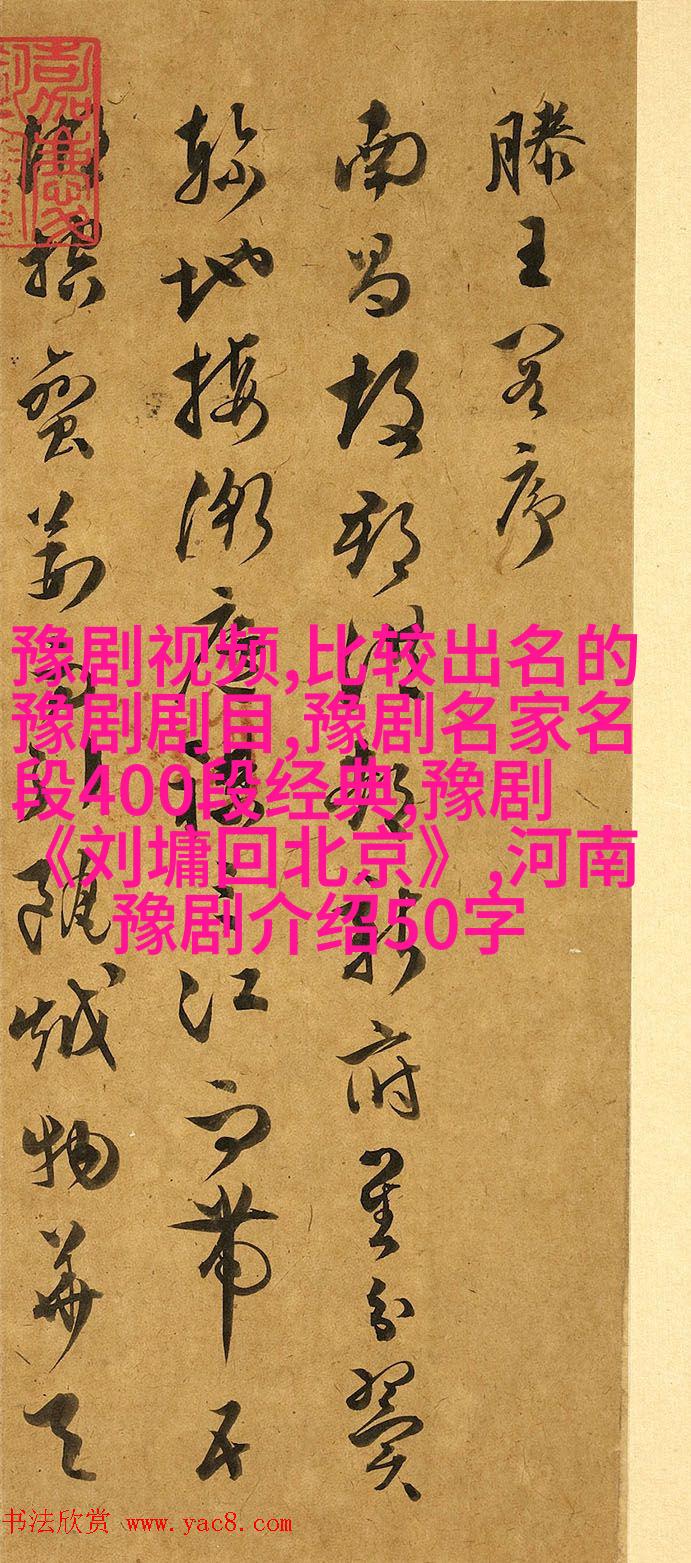 滕王閣序
南昌故郡洪都新府星分翼
軫地接衡廬襟三江而帶五
湖控蠻荊而引甌越物華天
豫剧视频,比较出名的
豫剧剧目,豫剧名家名
段400段经典,豫剧
《刘墉回北京》,河南
豫剧介绍50字
书法欣赏 www.yac8.com